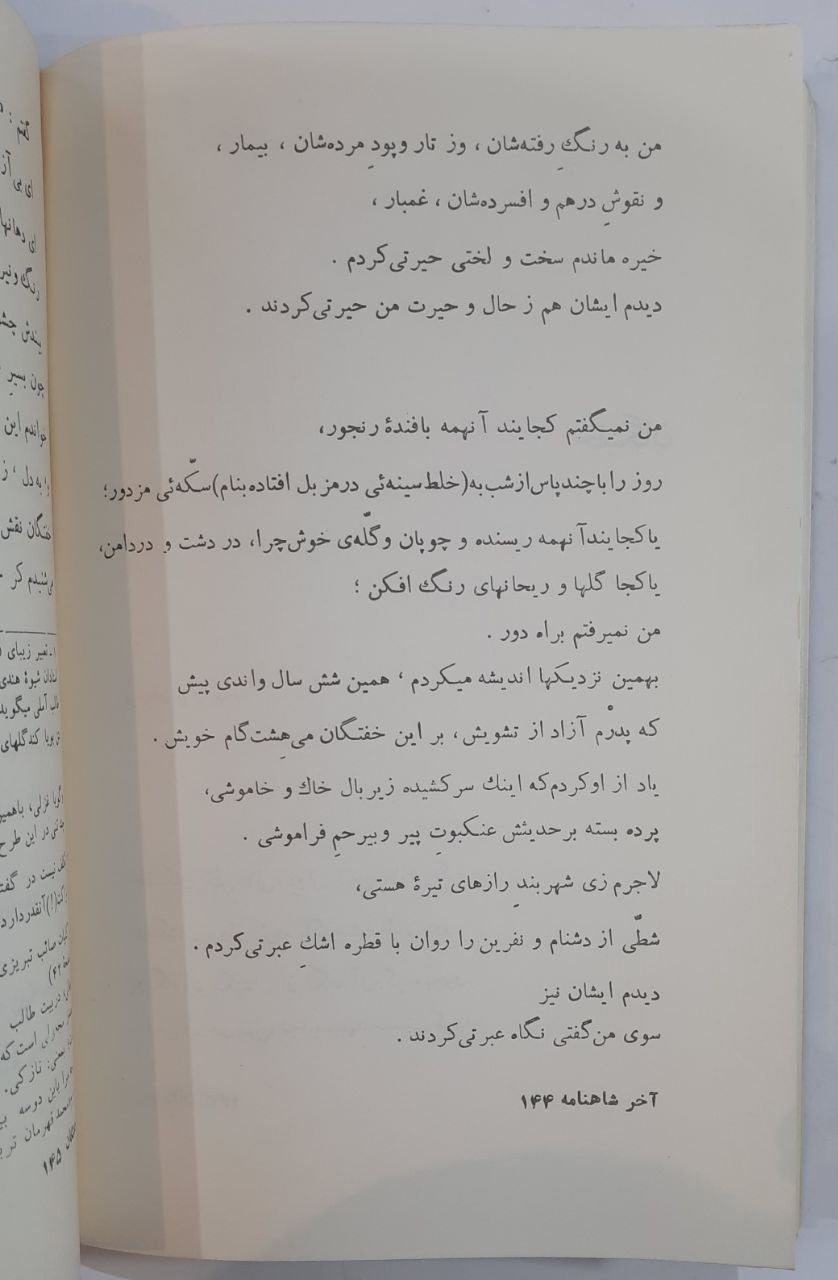 من به رنگِ رفته‌شان ، وز تار و پودِ مرده‌شان ، بیمار ،
و نقوشِ درهم و افسرده‌شان ، غمبار ،
خیره ماندم سخت و لختی حیرتی‌کردم .
دیدم ایشان هم ز حال و حیرت من حیرتی‌کردند .
من نمیگفتم کجایند آنهمه بافندهٔ رنجور،
روز را با چند پاس از شب به (خلط سینه‌ئی در مزبل افتاده بنام) سکّه‌ئی مزدور؛
یا کجایند آنهمه ریسنده و چوپان و گلّه‌ی خوش‌چرا، در دشت و در دامن،
یا کجا گلها و ریحانهای رنگ افکن ؛
من نمیرفتم براه دور .
بهمین نزدیکها اندیشه میکردم ، همین شش سال واندی پیش
که پدرْم آزاد از تشویش، بر این خفتگان می‌هِشت گام خویش .
یاد از او کردم که اینك سر کشیده زیر بال خاك و خاموشی،
پرده بسته بر حدیثش عنکبوتِ پیر و بیرحمِ فراموشی .
لاجرم زی شهر بندِ رازهای تیرهٔ هستی،
شطّی از دشنام و نفرین را روان با قطره اشكِ عبرتی‌کردم .
دیدم ایشان نیز
سوی من‌گفتی نگاه عبرتی‌کردند .
آخر شاهنامه ۱۴۴
گفتم :
ای بی آز
ای دهانها
خواندم این
به دل ، ز
خفتگان نقش
شیوهٔ هندی
طالب آملی میگوید
در این طرح
نیست در گفت
صائب تبریزی
بیت طالب
است که
یعنی: نازکی.
این دوسه
قهرمان
۱۴۵